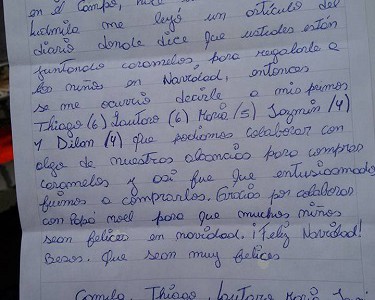 en el Campo, hice
ludmila me leyó un artículo del
diario donde dice que ustedes están
juntando caramelos para regalarle a
los niños en Navidad, entonces
se me ocurrió decirle a mis primos
Thiago (6) Lautaro (6) Mora (5) Jazmín (4)
y Dilan (4) que podíamos colaborar con
algo de nuestras alcancías para comprar
caramelos y así fue que entusiasmados
fuimos a comprarlos. Gracias por colaborar
con Papá Noel para que muchos niños
sean felices en navidad. ¡Feliz Navidad!
Besos. Que sean muy felices
Camila, Thiago, Lautaro Mora